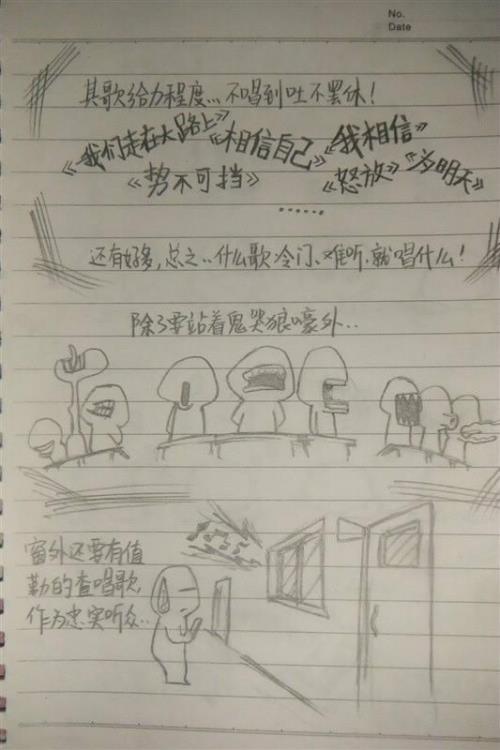 No.
Date
其歌给力程度... 不唱到吐不罢休!
《我们走在大路上》《相信自己》《我相信》
《势不可挡》《怒放》《为明天》
......
还有好多,总之..什么歌冷门、难听.就唱什么!
除了要站着鬼哭狼嚎外..
窗外还要有值
勤的查唱歌,
作为忠实听众..